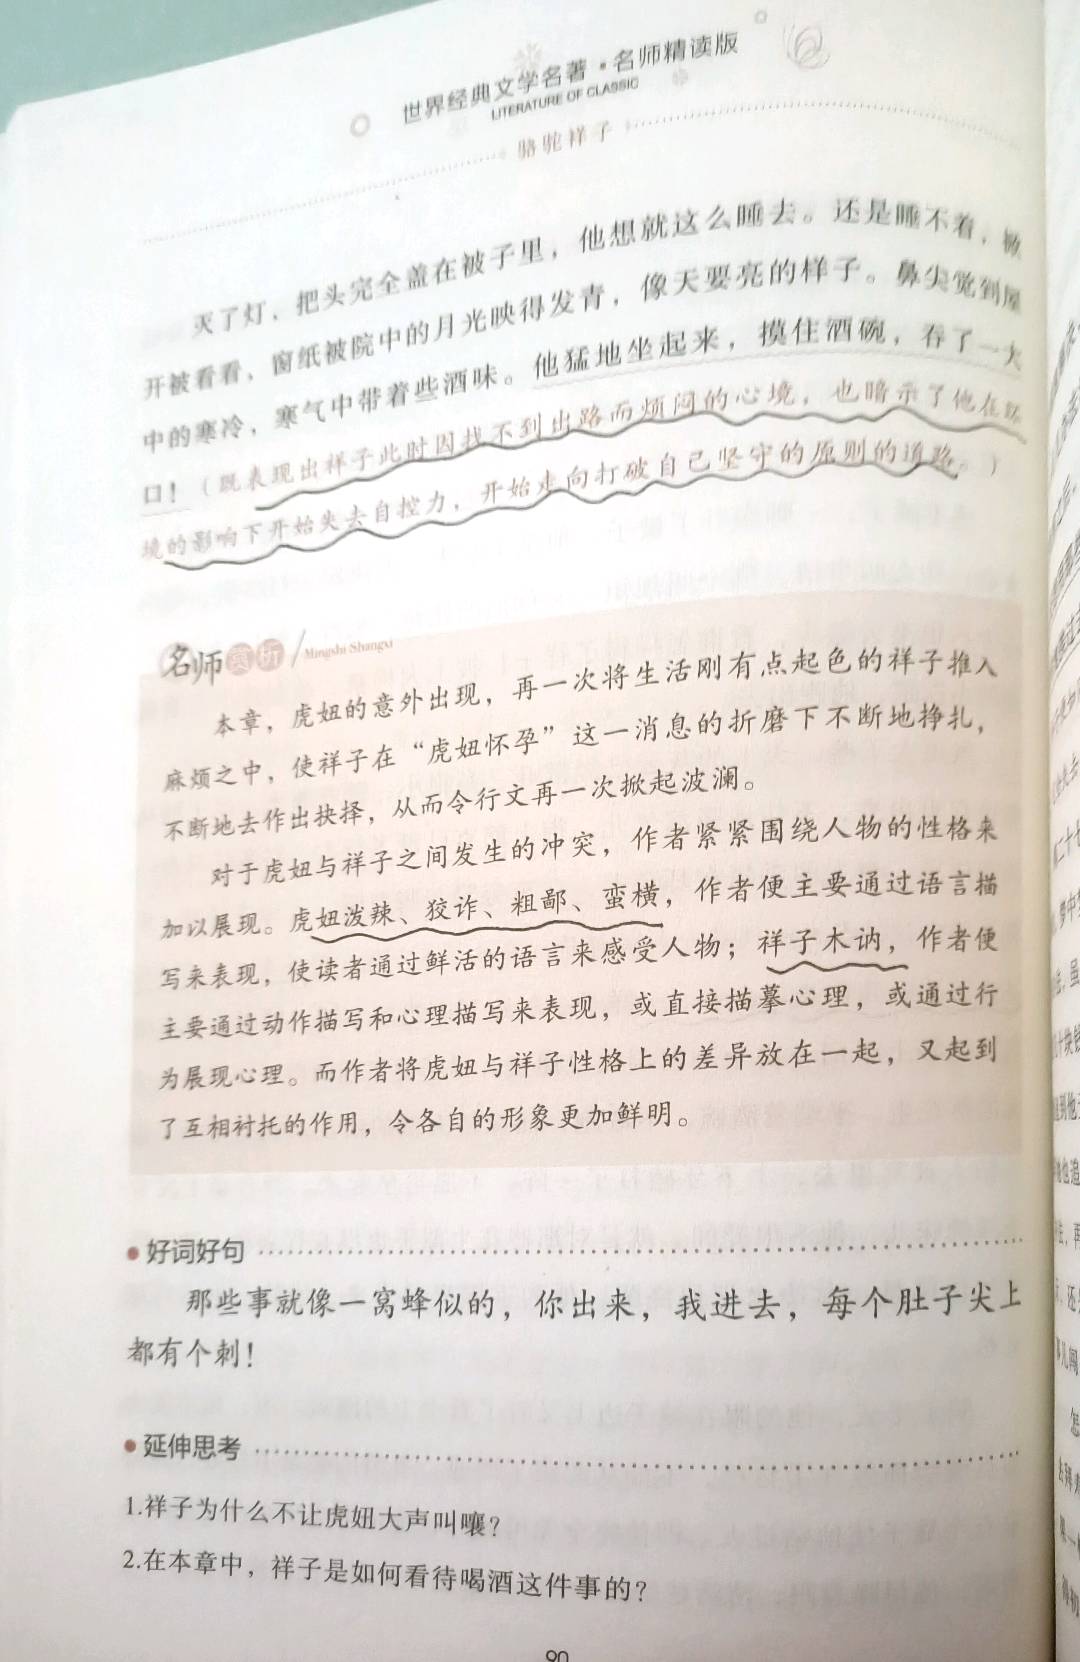 世界经典文学名著·名师精读版
LITERATURE OF CLASSIC
骆驼祥子
灭了灯，把头完全盖在被子里，他想就这么睡去。还是睡不着，掀
开被看看，窗纸被院中的月光映得发青，像天要亮的样子。鼻尖觉到屋
中的寒冷，寒气中带着些酒味。他猛地坐起来，摸住酒碗，吞了一大
口！（既表现出祥子此时因找不到出路而烦闷的心境，也暗示了他在环
境的影响下开始失去自控力，开始走向打破自己坚守的原则的道路。）
名师赏析/Mingshi Shangxi
本章，虎妞的意外出现，再一次将生活刚有点起色的祥子推入
麻烦之中，使祥子在“虎妞怀孕”这一消息的折磨下不断地挣扎，
不断地去作出抉择，从而令行文再一次掀起波澜。
对于虎妞与祥子之间发生的冲突，作者紧紧围绕人物的性格来
加以展现。虎妞泼辣、狡诈、粗鄙、蛮横，作者便主要通过语言描
写来表现，使读者通过鲜活的语言来感受人物；祥子木讷，作者便
主要通过动作描写和心理描写来表现，或直接描摹心理，或通过行
为展现心理。而作者将虎妞与祥子性格上的差异放在一起，又起到
了互相衬托的作用，令各自的形象更加鲜明。
好词好句
那些事就像一窝蜂似的，你出来，我进去，每个肚子尖上
都有个刺！
延伸思考
1.祥子为什么不让虎妞大声叫嚷？
2.在本章中，祥子是如何看待喝酒这件事的？
90